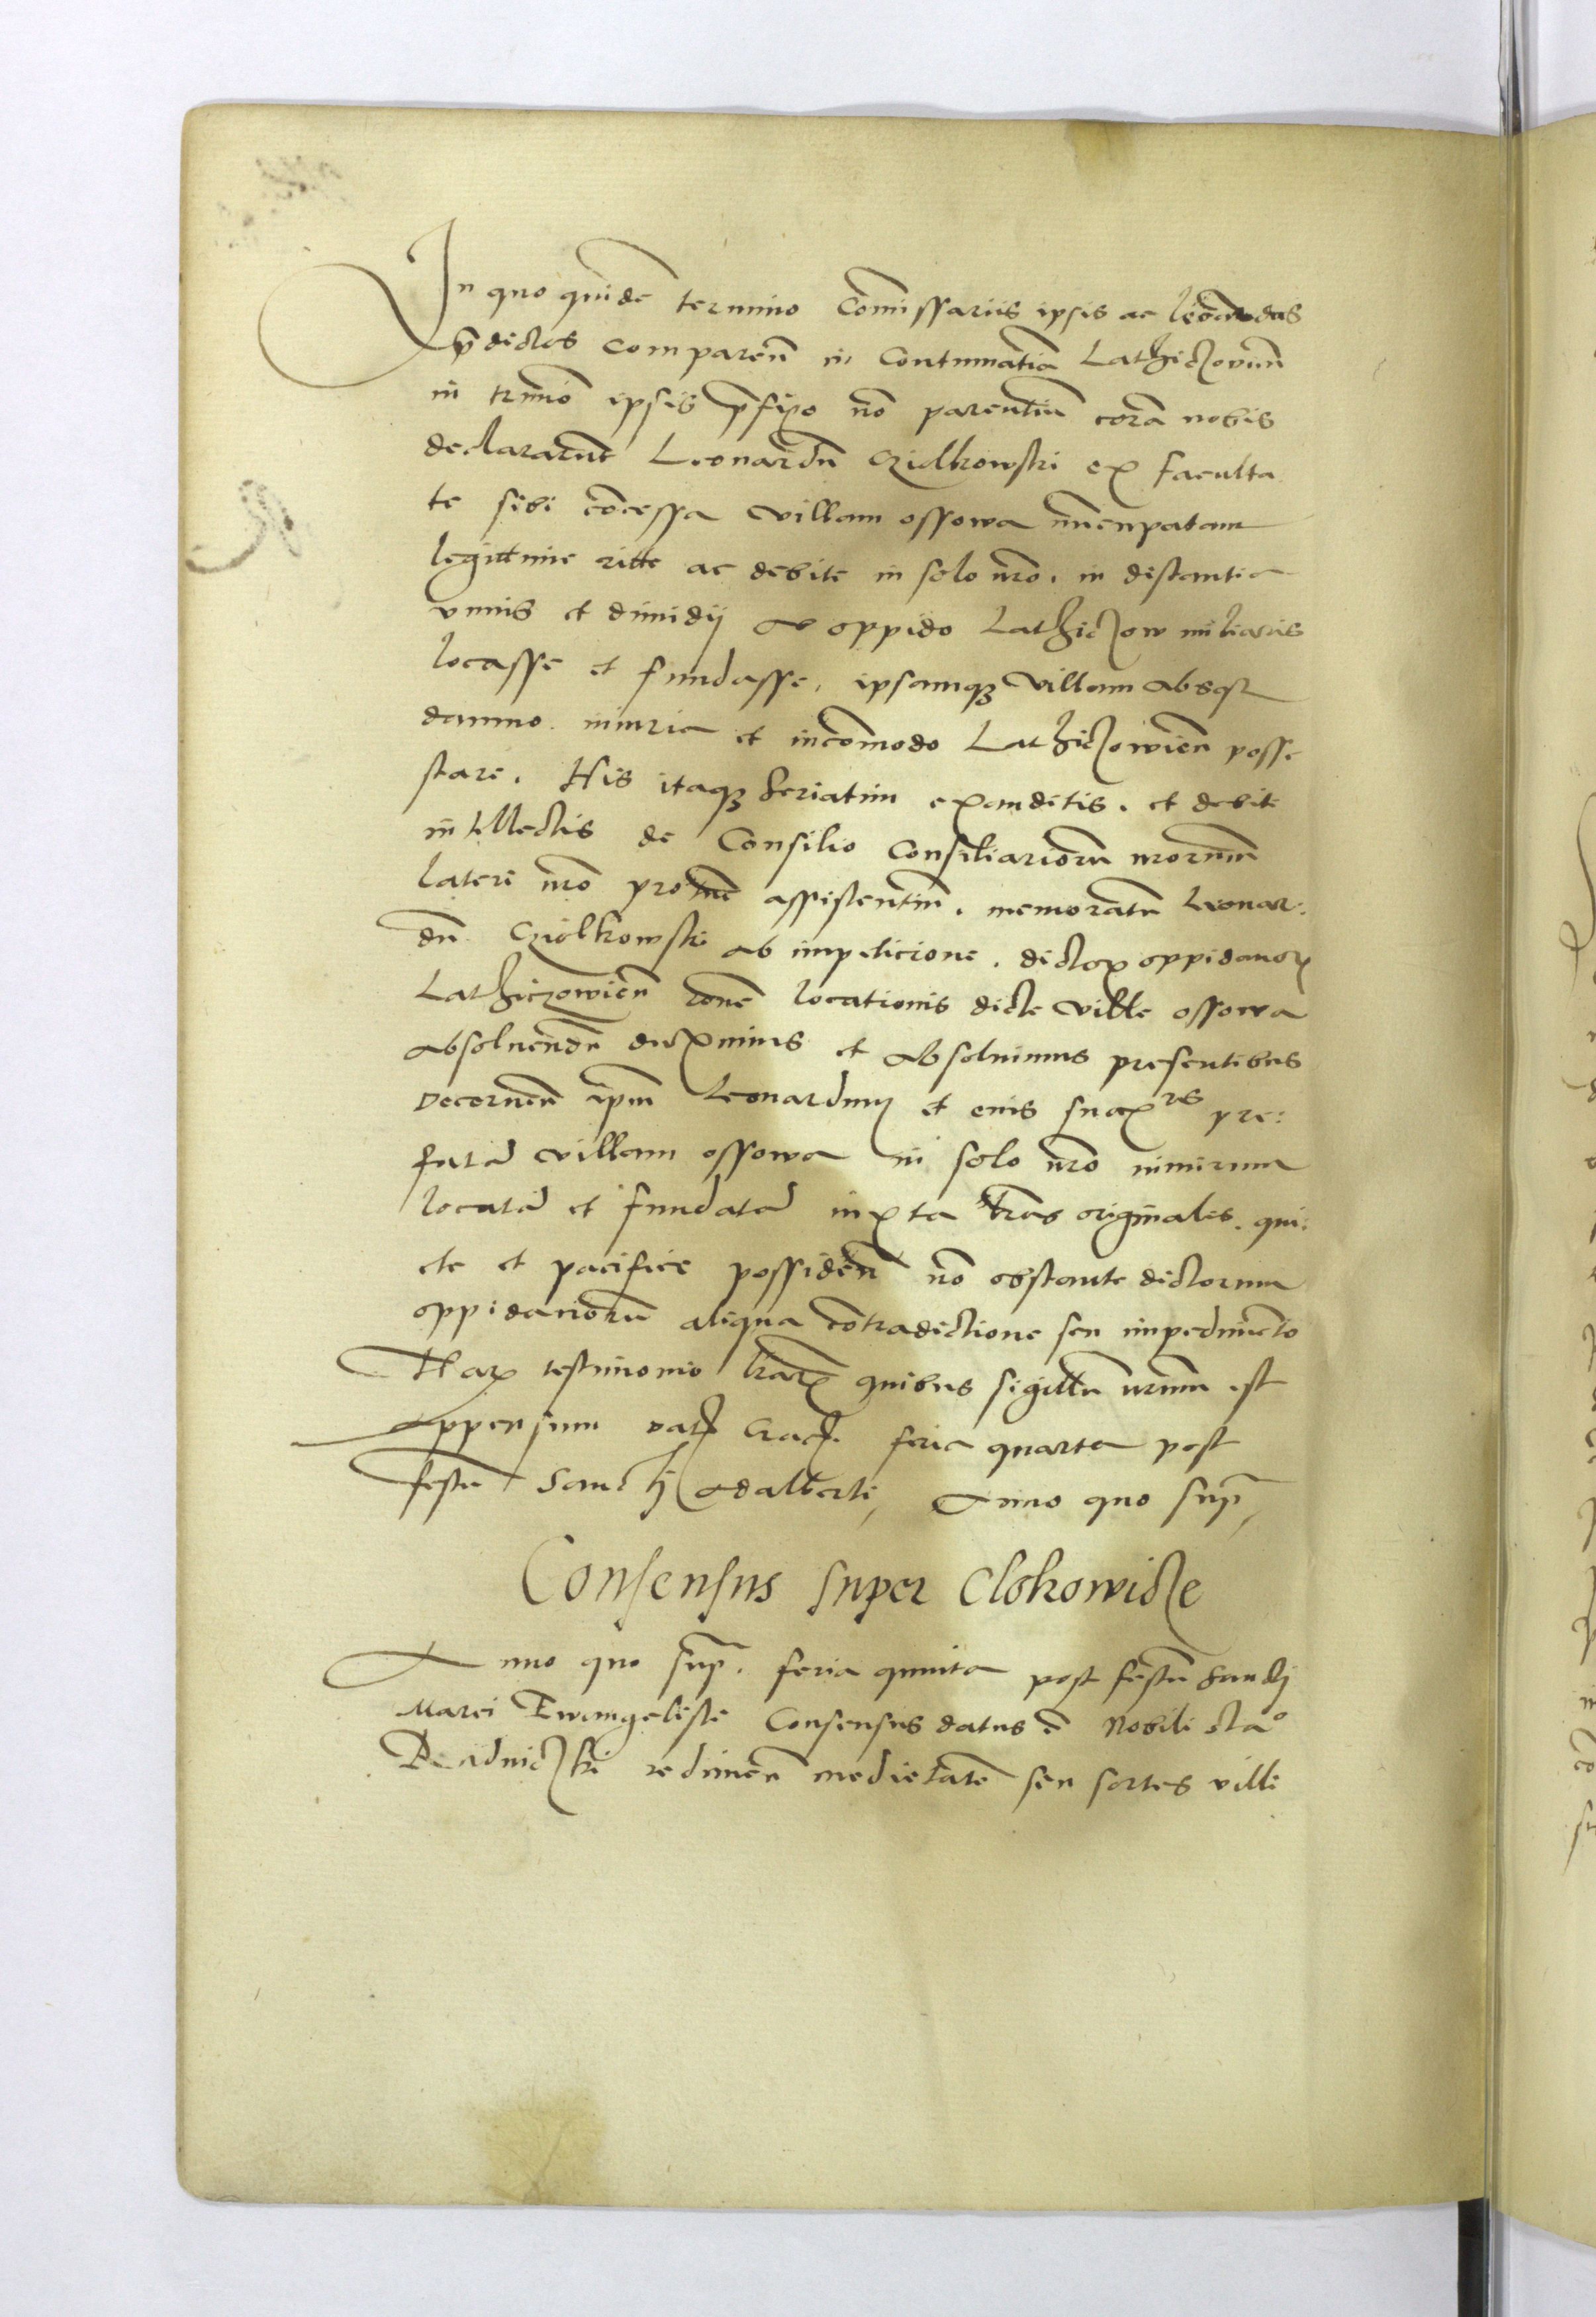 In quo quidē termino Com̄issariis ipsis ac
p̄dictos comparen̄ in Contumatia Lathiczovien̄
in tr̄mīo ipsis p̄fixo nō parentiū corā nobis
declararunt Leonardū Cziolkowski ex faculta
te sibi cōcessa villam ossowa nūcupatam
legittime ritte ac debite in solo nr̄o. in distantia
vnius et dimidij ab oppido Lathiczow miliaris
locasse et fundasse, ipsamqꝫ villam absqꝫ
damno. iniuria et incōmodo Lathiczowien̄ posse
stare. His itaqꝫ seriatim exauditis. et debite
intellectis de Consilio Consiliariorū nr̄orum
latere nr̄o pro tūc assistentiū. memoratū Leonar:
dū Cziolkowski ab impeticione. dictoꝝ oppidanoꝝ
Lathiczowien̄ rōne locationis dicte ville ossowa
absoluendū duximus et absoluimus presentibus
Decernen̄ ip̄m Leonardum et eius suc̄x̄res pre:
fatā villam ossowa in solo nr̄o nimirum
locatā et fundatā iuxta lr̄as originales. qui:
ete et pacifice possiden̄ nō obstante dictorum
oppidanorū aliqua cōtradictione seu impedimēto
Haꝝ testimonio lr̄aꝝ quibus sigillū nr̄um est
appensum Dat̄ Crac̄. feria quarta post
festū Sancti Adalberti, Anno quo sup̄,
Consensus super Clokowicze
Anno quo sup̄. feria quinta post festū Sancti
Marci Ewangeliste Consensus datus ē Nobili Sta°
redimen̄ medietatē seu sortes ville